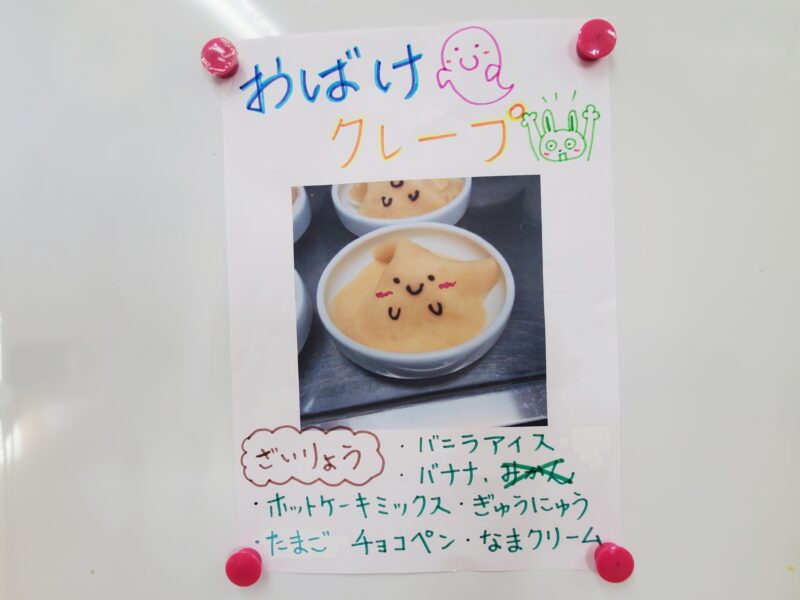 おばけ
クレープ
ざいりょう
・バニラアイス
・バナナ、みかん
・ホットケーキミックス・ぎゅうにゅう
・たまご チョコペン・なまクリーム